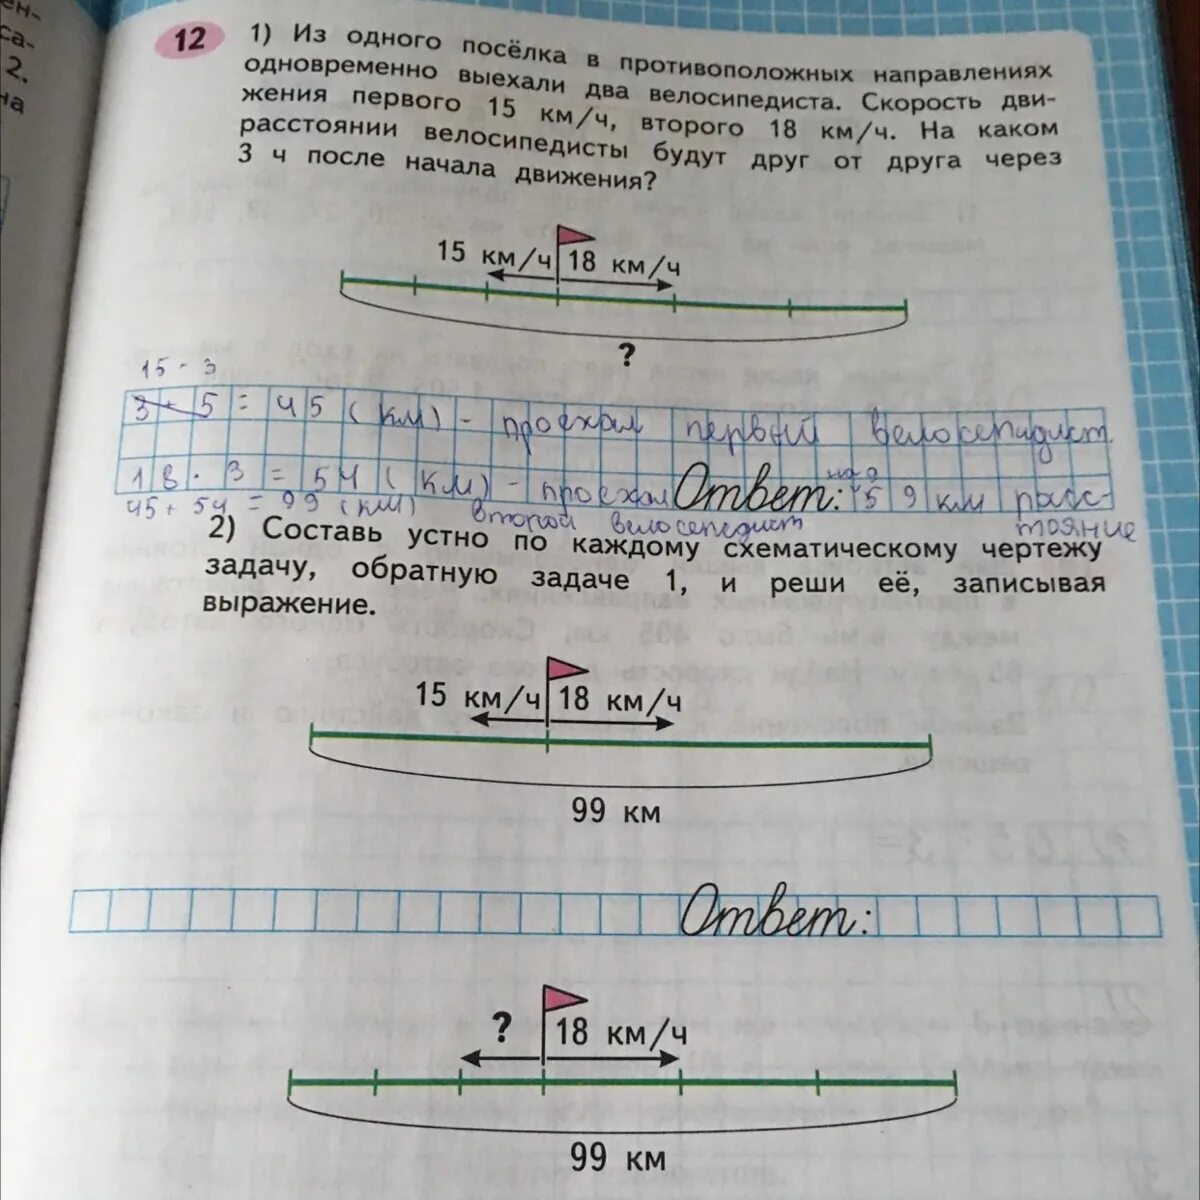 ен-
са-
2.
на
12 1) Из одного посёлка в противоположных направлениях
одновременно выехали два велосипедиста. Скорость дви-
жения первого 15 км/ч, второго 18 км/ч. На каком
расстоянии велосипедисты будут друг от друга через
3 ч после начала движения?
15 км/ч 18 км/ч
?
15 · 3
3 · 5 = 45 (км) - проехал первый велосепидист
18 · 3 = 54 (км) - проехал Ответ: на 9
59 км расс-
45 + 54 = 99 (км) второй велосепедист тояние
2) Составь устно по каждому схематическому чертежу
задачу, обратную задаче 1, и реши её, записывая
выражение.
15 км/ч 18 км/ч
99 км
Ответ:
? 18 км/ч
99 км